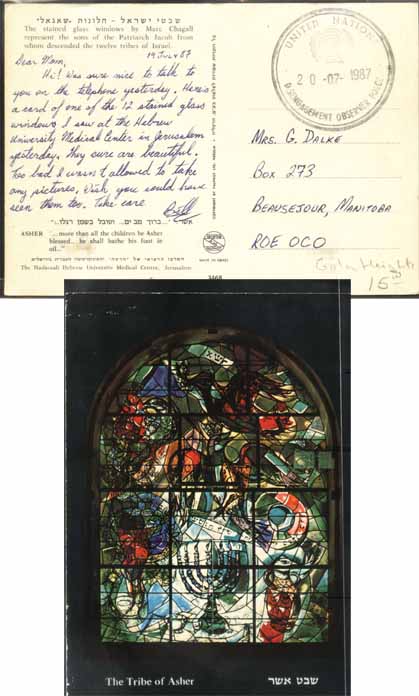 שבטי ישראל - חלונות שאגאלי
The stained glass windows by Marc Chagall
represent the sons of the Patriarch Jacob from
whom descended the twelve tribes of Israel.
19 July 87
Dear Mom,
Hi! Was sure nice to talk to
you on the telephone yesterday. Here's
a card of one of the 12 stained glass
windows I saw at the Hebrew
University Medical Center in Jerusalem
yesterday. They sure are beautiful.
Too bad I wasn't allowed to take
any pictures. Wish you could have
seen them too. Take care
Bill
אשר "...ברוך מבנים... וטובל בשמן רגלו."
ASHER "...more than all the children be Asher
blessed... he shall bathe his foot in
oil..."
The Hadassah Hebrew University Medical Centre, Jerusalem
MADE IN ISRAEL
3468
UNITED NATIONS
20-07-1987
DISENGAGEMENT OBSERVER FORCE
MRS. G. DALKE
BOX 273
BEAUSEJOUR, MANITOBA
ROE OCO
Golan Heights
15-
The Tribe of Asher
שבט אשר